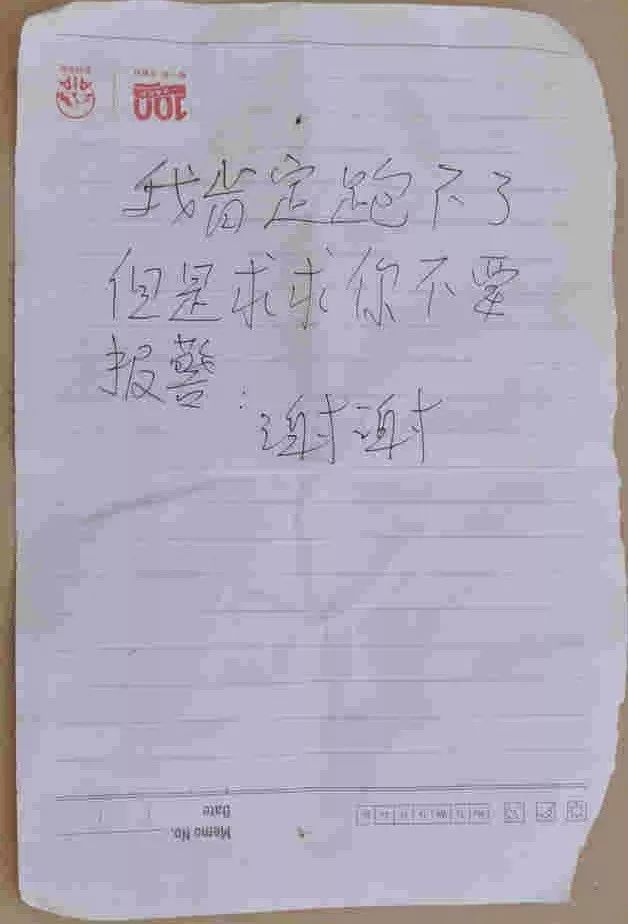 我肯定跑不了
但是求求你不要
报警:
谢谢
100
Date
Memo No.